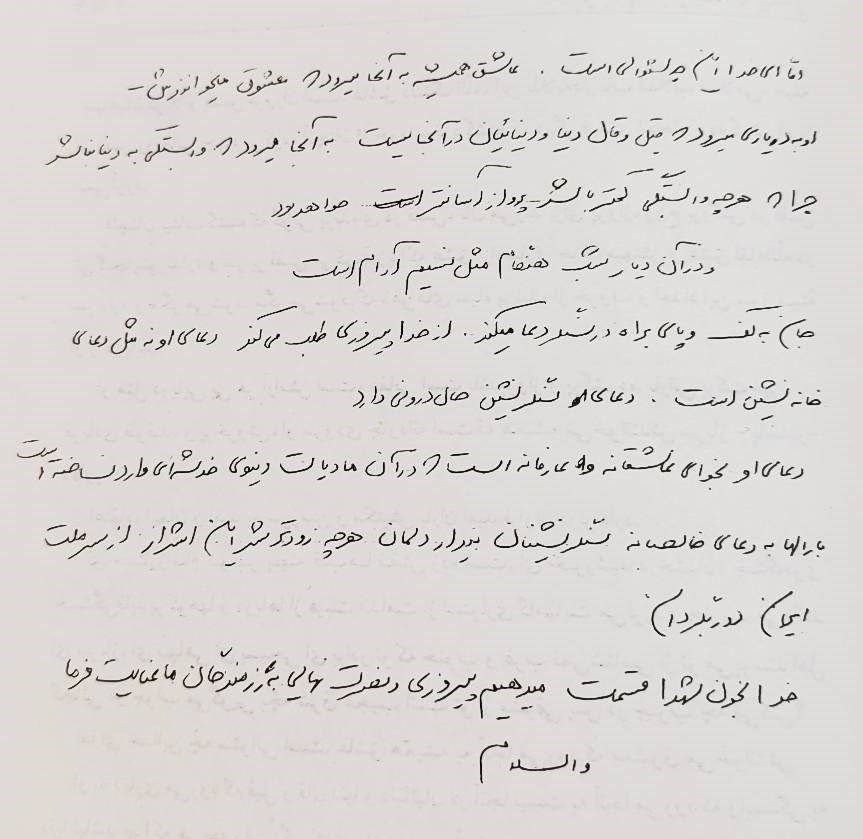 اما ای خدا این چه سئوالی است . عاشق همیشه به آنجا میرود که معشوق میخواندش –
او به دیاری میرود که قیل و قال دنیا و دنیائیان در آنجا نیست به آنجا میرود که وابستگی به دنیا نباشد
چرا که هرچه وابستگی کمتر باشد پرواز آسانتر است خواهد بود
و در آن دیار شب هنگام مثل نسیم آرام است
جان به کف و پای براه در سنگر دعا میکند . از خدا پیروزی طلب می کند دعای او نه مثل دعای
خانه نشین است . دعای او سنگر نشین حال درونی دارد
دعای او نجوای عاشقانه و عارفانه است که در آن مادیات دنیوی خدشه ای وارد نساخته است
بارالها به دعای خالصانه سنگرنشینان بیدار دلمان هرچه زودتر شر این اشرار از سر ملت
ایران دور بگردان
خدا بخون شهدا قسمت میدهیم پیروزی و نصرت نهائی به رزمندگان ما عنایت فرما
والسلام